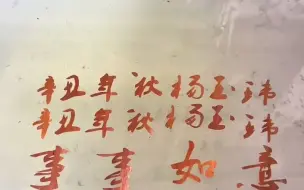 辛丑年秋杨玉玮
辛丑年秋杨玉玮
事事如意